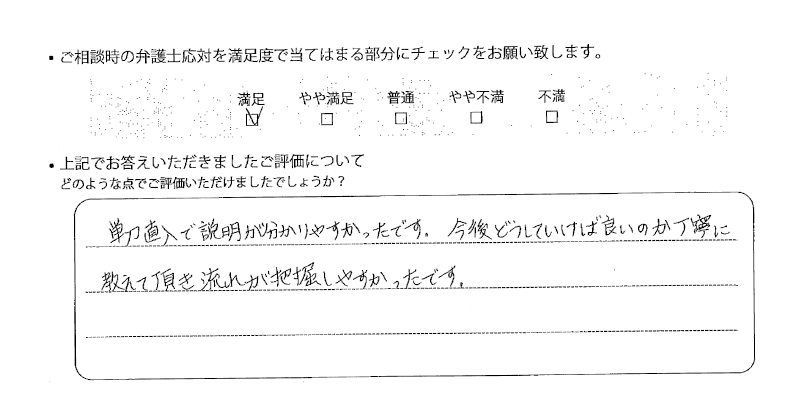 ▪ ご相談時の弁護士応対を満足度で当てはまる部分にチェックをお願い致します。
満足 やや満足 普通 やや不満 不満
☑ □ □ □ □
▪ 上記でお答えいただきましたご評価について
どのような点でご評価いただけましたでしょうか？
単刀直入で説明が分かりやすかったです。今後どうしていけば良いのか丁寧に
教えて頂き流れが把握しやすかったです。